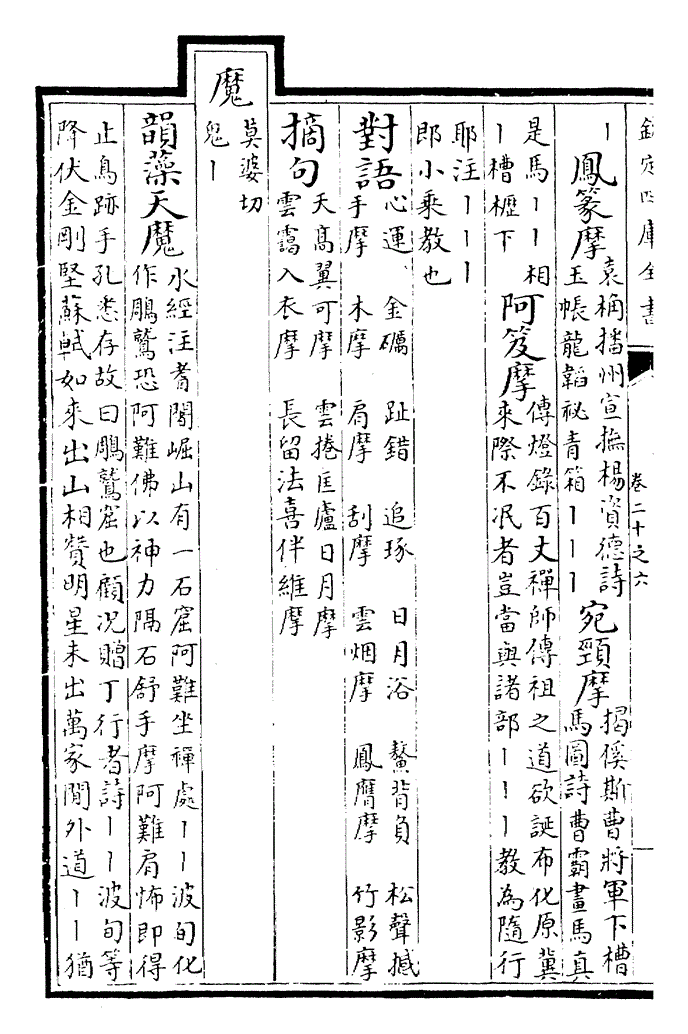 欽定四庫全書
卷二十之六
丨
鳳篆摩
袁桷播州宣撫楊資德詩
玉帳龍韜祕青箱丨丨丨
宛頸摩
揭傒斯曹將軍下槽
馬圖詩曹霸畫馬真
是馬丨丨相
丨槽櫪下
阿笈摩
傳燈錄百丈禪師傳祖之道欲誕布化原冀
來際不泯者豈當與諸部丨丨丨教為隨行
耶注丨丨丨
即小乘教也
對語
心運 金礪 趾錯 追琢 日月浴 鰲背負 松聲撼
手摩 木摩 肩摩 刮摩 雲烟摩 鳳膺摩 竹影摩
摘句
天高翼可摩 雲捲匡廬日月摩
雲靄入衣摩 長留法喜伴維摩
魔
莫婆切
鬼丨
韻藻天魔
水經注耆闍崛山有一石窟阿難坐禪處丨丨波旬化
作鵰鷲恐阿難佛以神力隔石舒手摩阿難肩怖即得
止鳥跡手孔悉存故曰鵰鷲窟也顧况贈丁行者詩丨丨波旬等
降伏金剛堅蘇軾如來出山相贊明星未出萬家閒外道丨丨猶